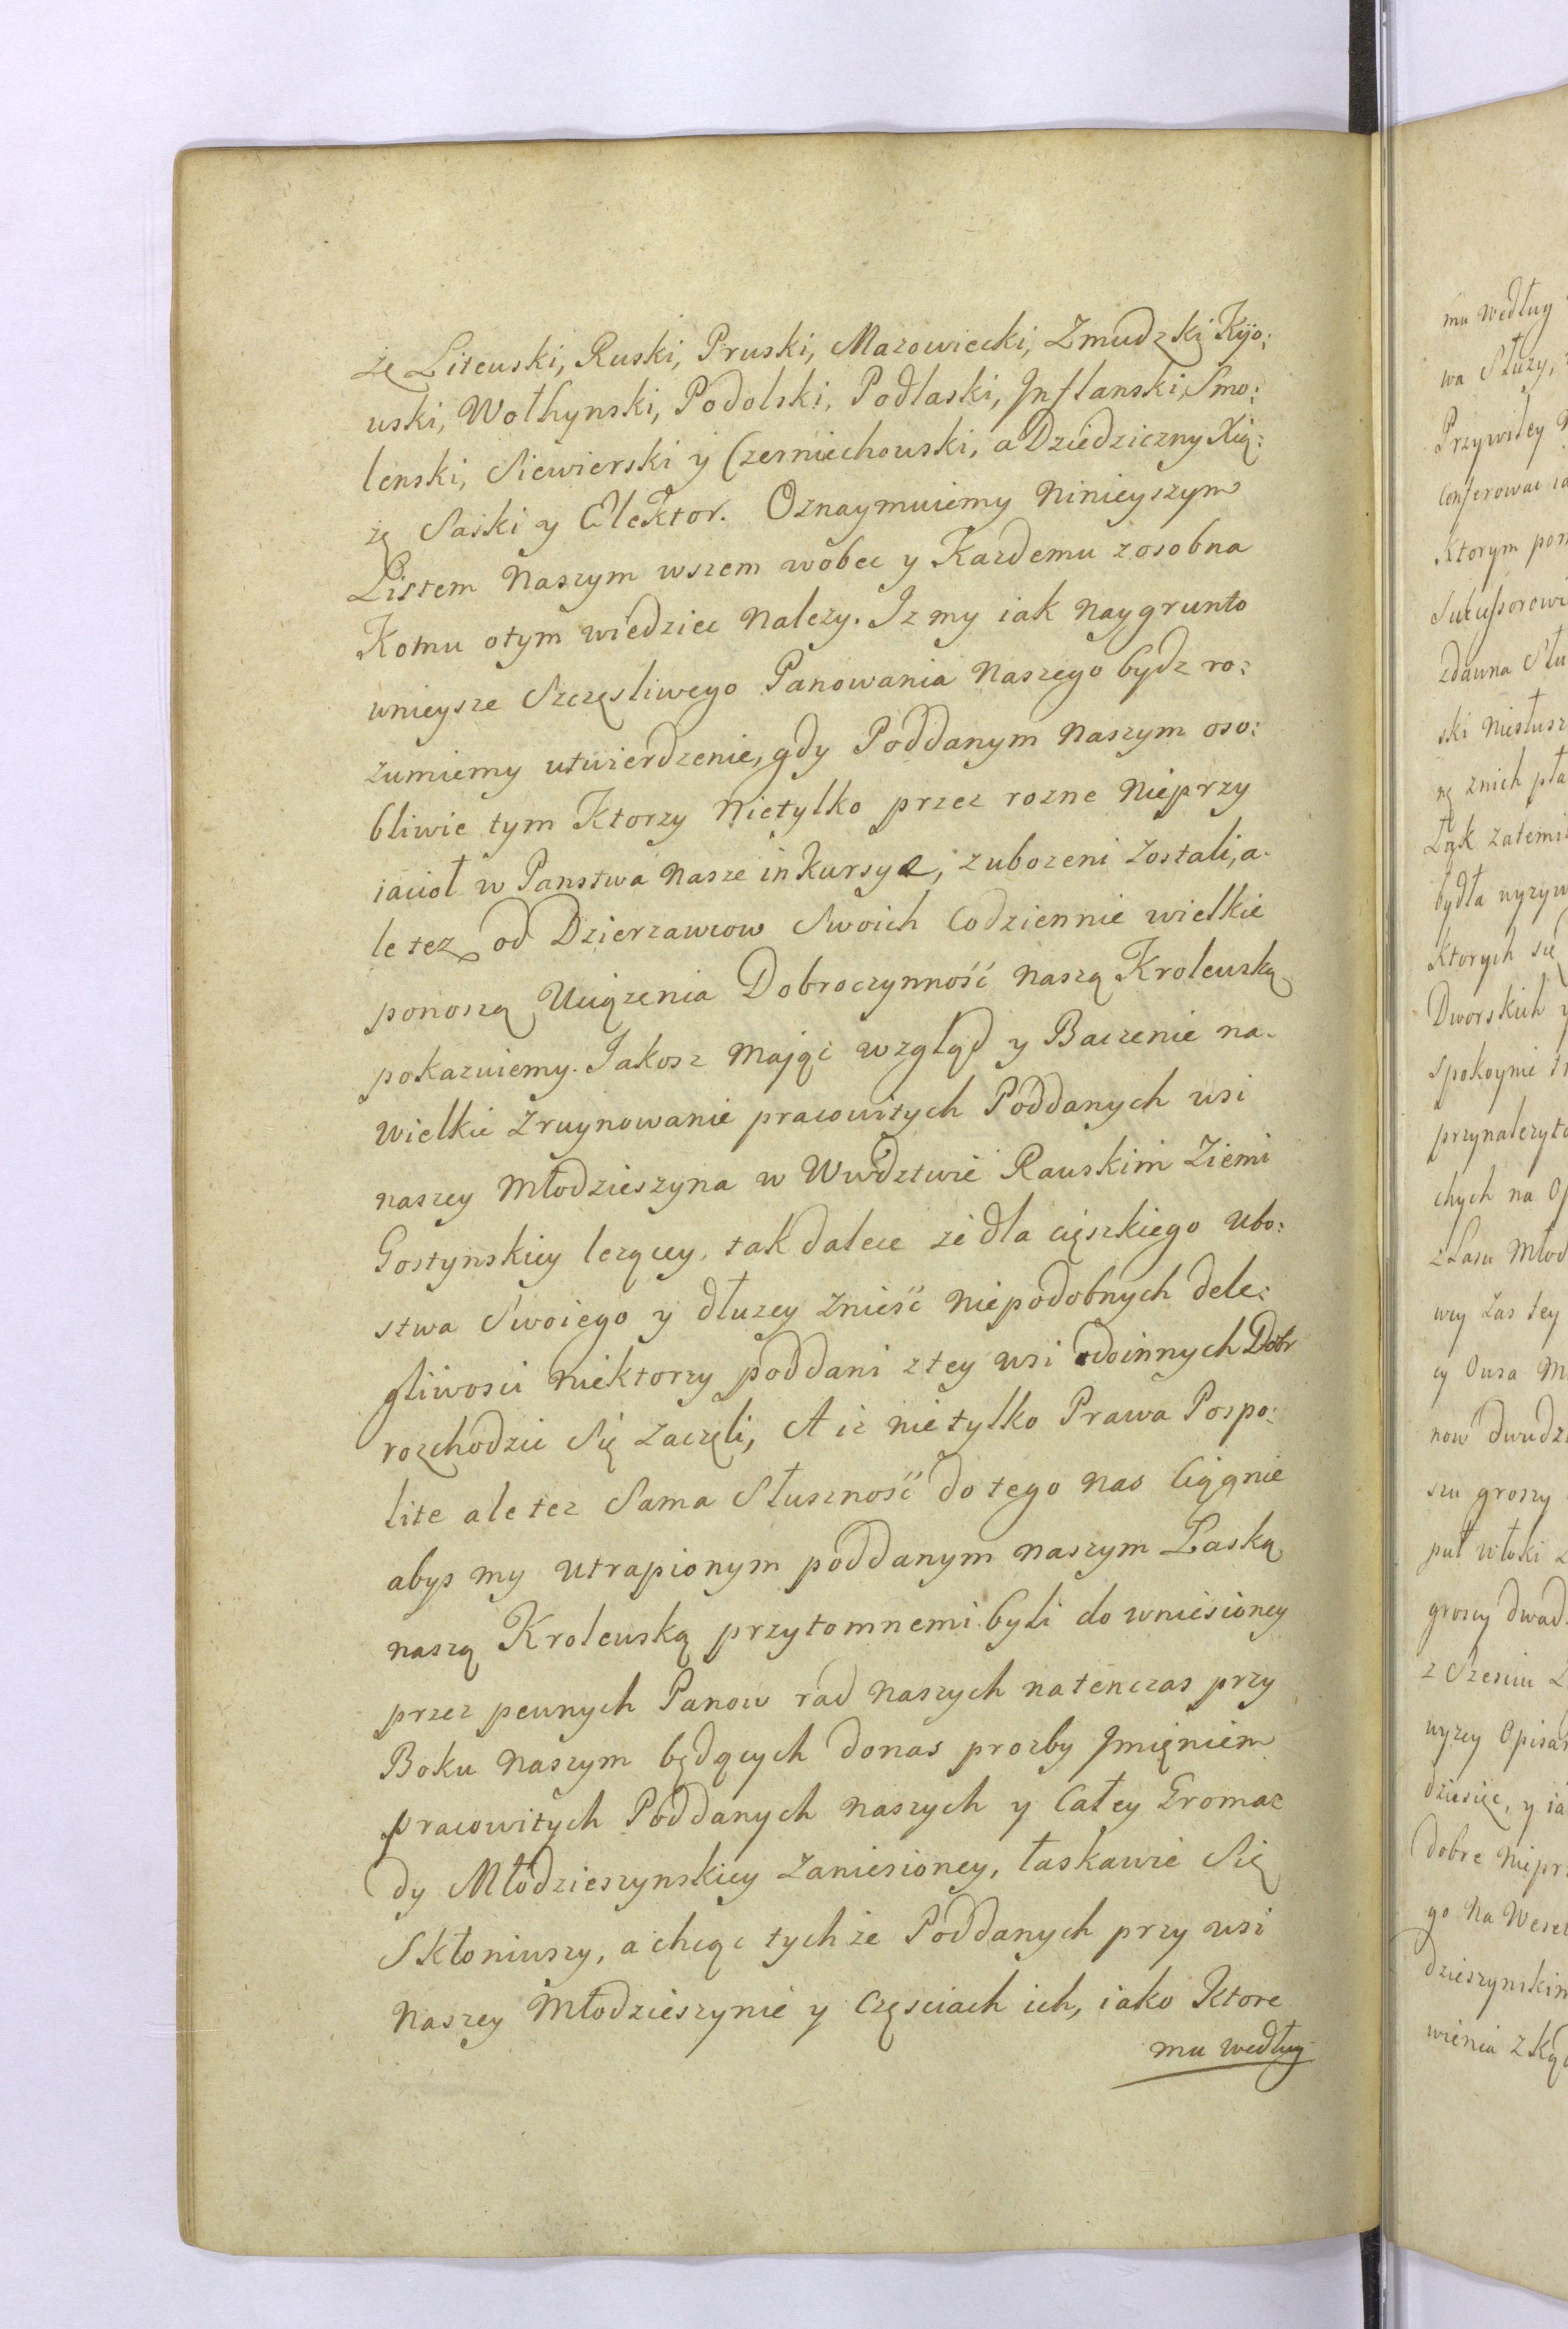 żę Litewski, Ruski, Pruski, Mazowiecki, Zmudzki Kijo:
wski, Wołhynski, Podolski, Podlaski, Inflanski, Smo:
lenski, Siewierski y Czerniechowski, a Dziedziczny Xią:
żę Saski y Elektor. Oznaymuiemy Ninieyszym
Listem Naszym wszem wobec y Kazdemu zosobna
Komu otym wiedziec Nalezy. Iz my iak Naygrunto
wnieysze Szczęsliwego Panowania Naszego bydz ro:
zumiemy utwierdzenie, gdy Poddanym Naszym oso:
bliwie tym Ktorzy Nietylko przez rozne Nieprzy
iacioł w Panstwa Nasze inkursye, zubozeni zostali, a-
le tez od Dzierzawcow Swoich Codziennie wielkie
ponoszą Uciązenia Dobroczynność Naszą Krolewską
pokazuiemy. Jakosz Mając wzgląd y Baczenie na-
wielkie Zruynowanie pracowitych Poddanych wsi
naszey Młodzieszyna w Wwdztwie Rauskim Ziemi
Gostynskiey lezącey, tak dalece ze dla cięszkiego Ubo:
stwa Swoiego y dłuzey Znieść Niepodobnych dole:
gliwosci Niektorzy poddani z tey wsi doinnych Dobr
rozchodzic Się Zaczęli, A iz nie tylko Prawa Pospo:
lite ale tez Sama Słuszność do tego Nas Ciągnie
abys my Utrapionym poddanym Naszym Łaską
naszą Krolewską przytomnemi byli do wniesioney
przez pewnych Panow rad Naszych natenczas przy
Boku Naszym będących donas prozby Imięniem
pracowitych Poddanych Naszych y Całey Gromac
dy Młodzieszynskiey Zaniesioney, łaskawie Się
Skłoniwszy, a chcąc tychze Poddanych przy wsi
Naszey Młodzieszynie y Częsciach ich, iako Ktore
mu według
mu według
wa Słuzy,
Przywiley
Conferowac
Ktorym
Sukcessorowi
zdawna
ski
znich
Tak
bydła
Ktorych się
Dworskich y
spokoynie
chych na
z Lasu
wey Las tey
cy Owsa
now
szu groszy
puł włoki
groszy
z Szesciu
wyzey
dziesięc, y
dobre
go Na
dzieszynskim
wienia